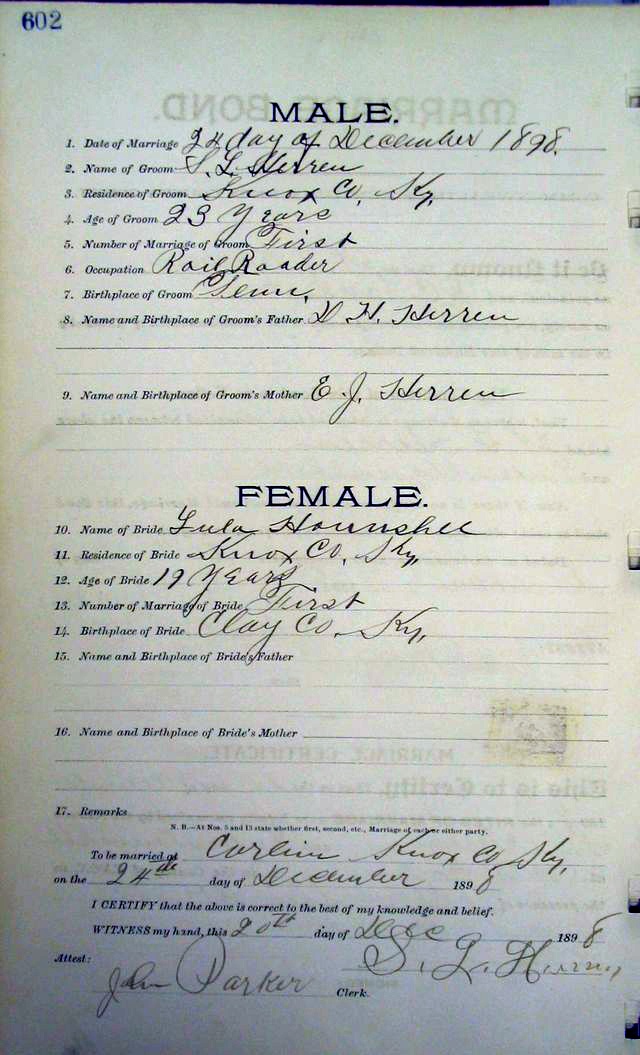 602
MALE.
1. Date of Marriage 24 day of December 1898.
2. Name of Groom S. L. Herren
3. Residence of Groom Knox Co, Ky,
4. Age of Groom 23 Years
5. Number of Marriage of Groom First
6. Occupation Rail Roader
7. Birthplace of Groom Tenn,
8. Name and Birthplace of Groom's Father D H. Herren
9. Name and Birthplace of Groom's Mother E. J. Herren
FEMALE.
10. Name of Bride Lula Hounshell
11. Residence of Bride Knox Co, Ky,
12. Age of Bride 19 Years
13. Number of Marriage of Bride First
14. Birthplace of Bride Clay Co, Ky,
15. Name and Birthplace of Bride's Father
16. Name and Birthplace of Bride's Mother
17. Remarks
N. B.—At Nos. 5 and 13 state whether first, second, etc., Marriage of each or either party.
To be married at Corbin Knox Co, Ky,
on the 24th day of December 1898
I CERTIFY that the above is correct to the best of my knowledge and belief.
WITNESS my hand, this 20th day of Dec 1898
Attest: S. L. Herren
John Parker Clerk.